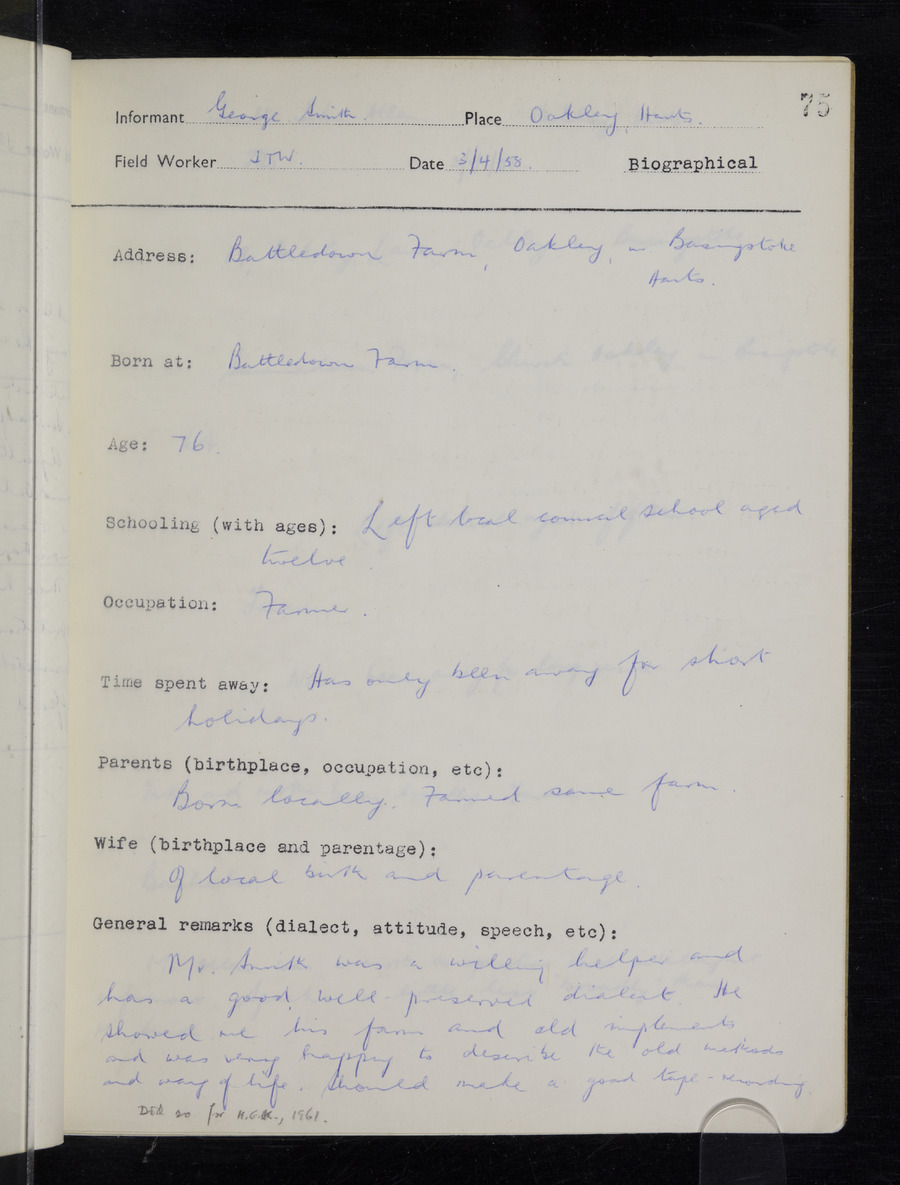 75
Informant George Smith. Place Oakley, Hants.
Field Worker J T W. Date 3/4/58. Biographical
Address: Battledown Farm, Oakley, nr. Basingstoke
Hants.
Born at: Battledown Farm.
Age: 76.
Schooling (with ages): Left local council school aged
twelve
Occupation: Farmer.
Time spent away: Has only been away for short
holidays.
Parents (birthplace, occupation, etc):
Born locally. Farmed same farm.
Wife (birthplace and parentage):
Of local birth and parentage.
General remarks (dialect, attitude, speech, etc):
Mr. Smith was a willing helper and
has a good, well-preserved dialect. He
showed me his farm and old implements
and was very happy to describe the old methods
and way of life. Should make a good tape-recording.
for 1961.